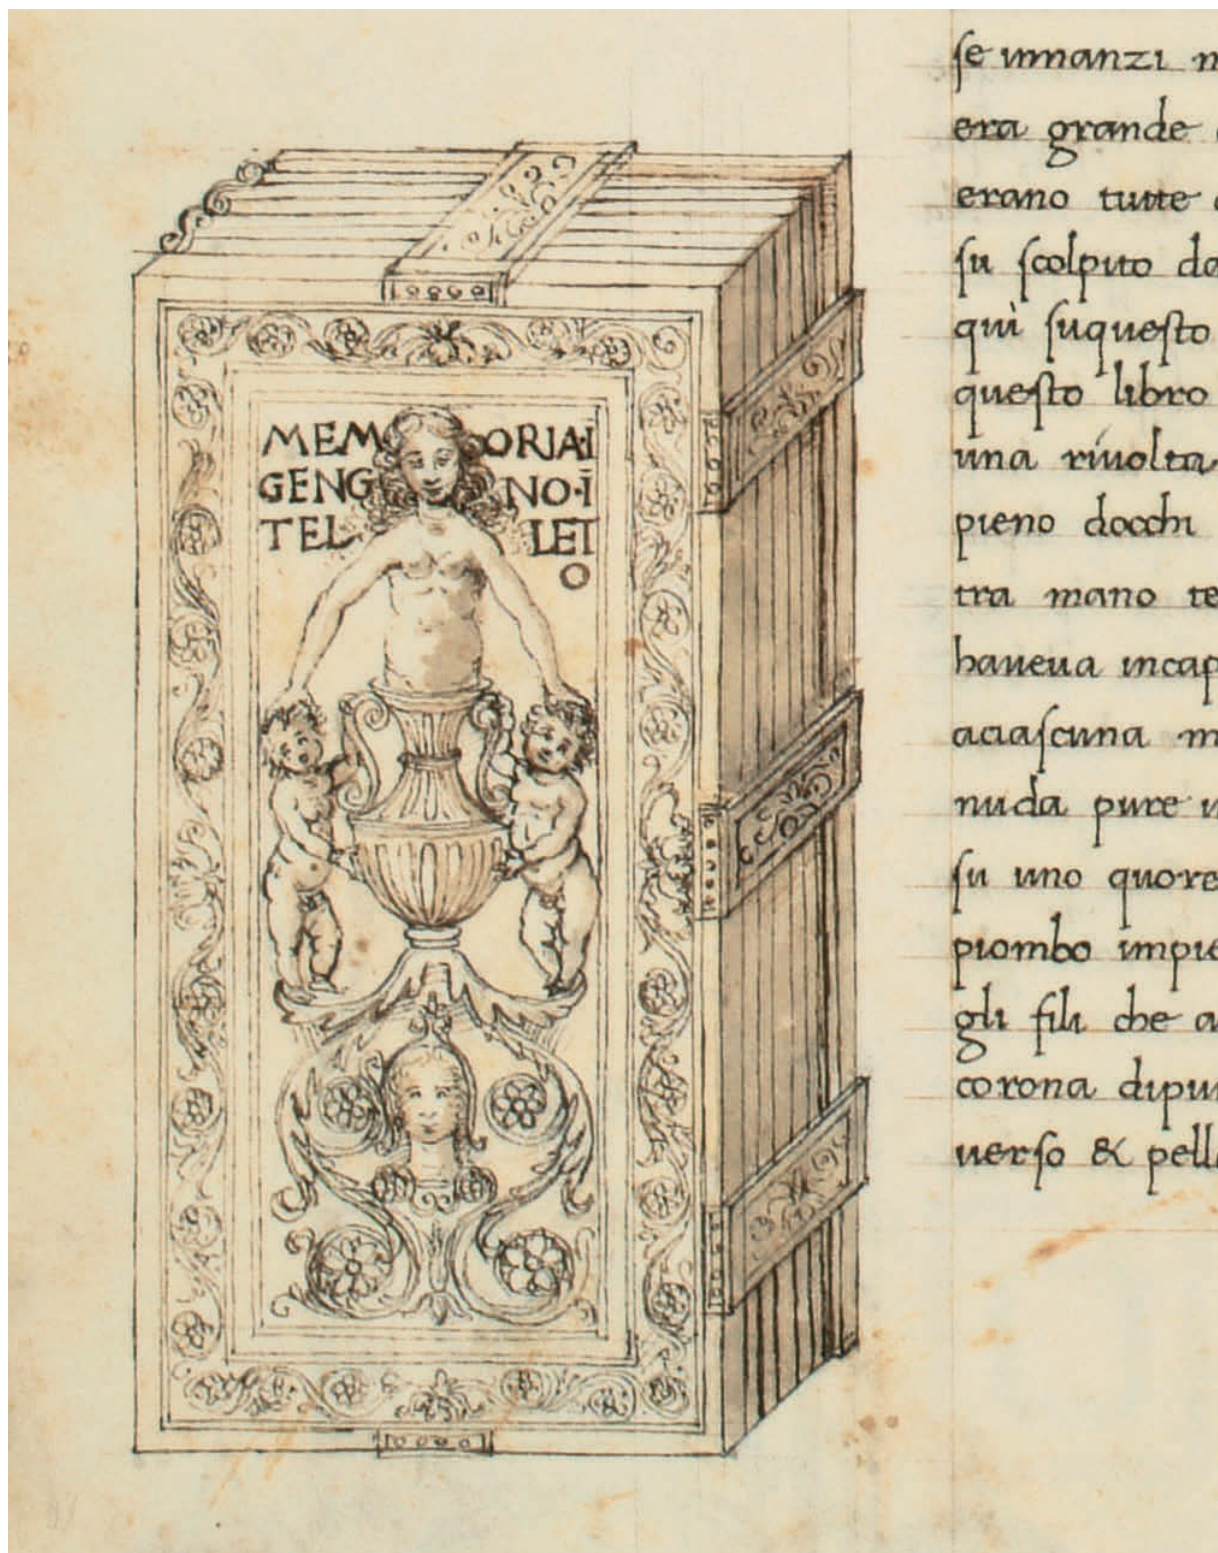 MEMORIA·I
GENGNO·Ī
TELLET
O
ſe innanzi
era grande
erano tutte
ſu ſcolpito
qui ſuqueſto
queſto libro
una riuolta
pieno docchi
tra mano
haueua
aciaſcuna
nuda pure
ſu uno quore
piombo
gli fili che
corona
uerſo & pell